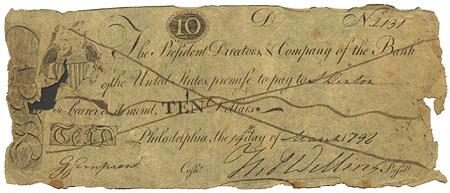 10 D No. 2131
The President Directors, & Company of the Bank
of the United States, promise to pay to
or bearer on demand, TEN Dollars
Ten Philadelphia, the day of 179
G Simpson Cashr. Tho Willing Presidt.